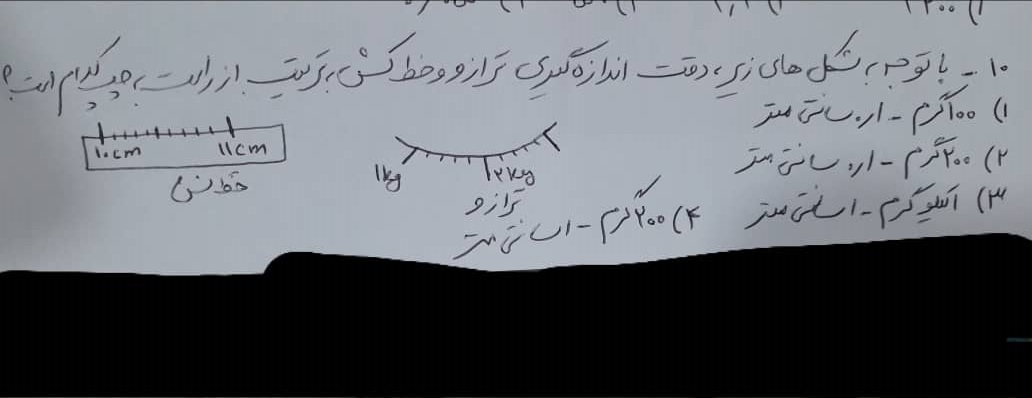 ۱۰ - با توجه به شکل های زیر، دقت اندازه گیری ترازو و خط کش به ترتیب از راست به چپ کدام است؟
۱) ۱۰۰گرم - ۰/۱ سانتی متر
۲) ۲۰۰گرم - ۰/۱ سانتی متر
۳) ۱کیلوگرم - ۱سانتی متر
۴) ۲۰۰گرم - ۱سانتی متر
۱kg ۲kg
ترازو
۱۰cm ۱۱cm
خط کش